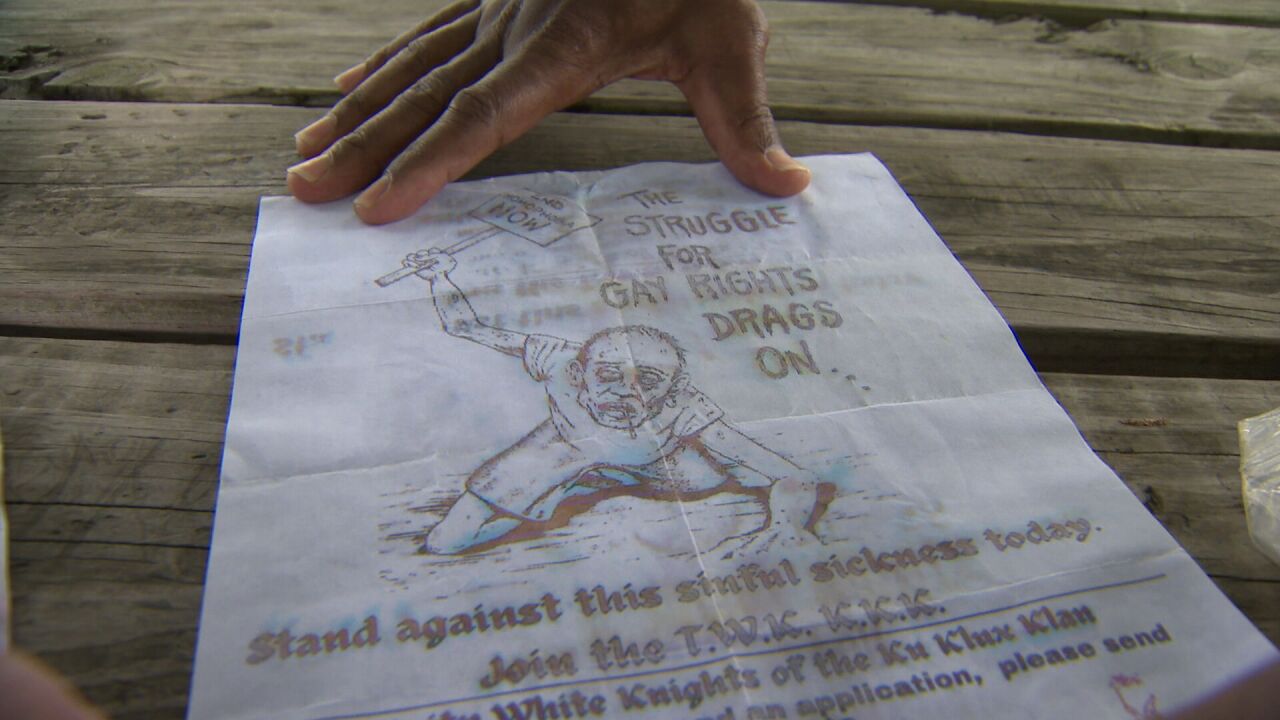 END
HOMOPHOBIA
NOW
THE
STRUGGLE
FOR
GAY RIGHTS
DRAGS
ON...
Stand against this sinful sickness today.
Join the T.W.K. K.K.K.
White Knights of the Ku Klux Klan
an application, please send